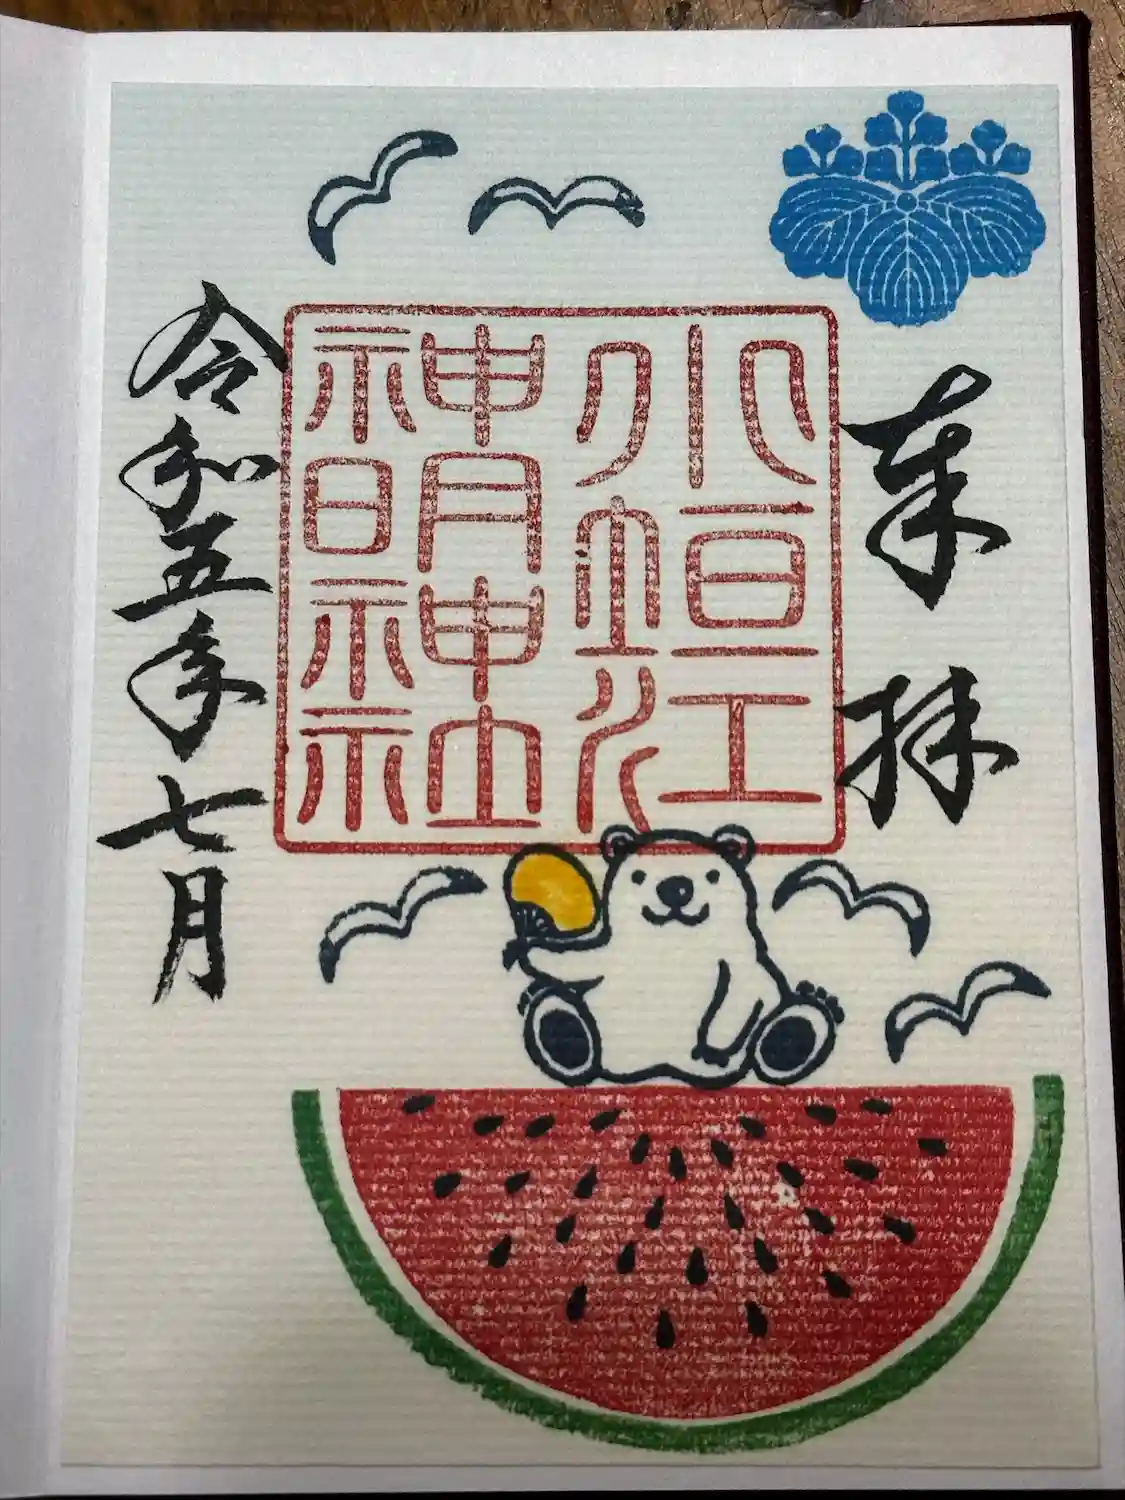 奉拝
小垣江
神明神社
令和五年七月